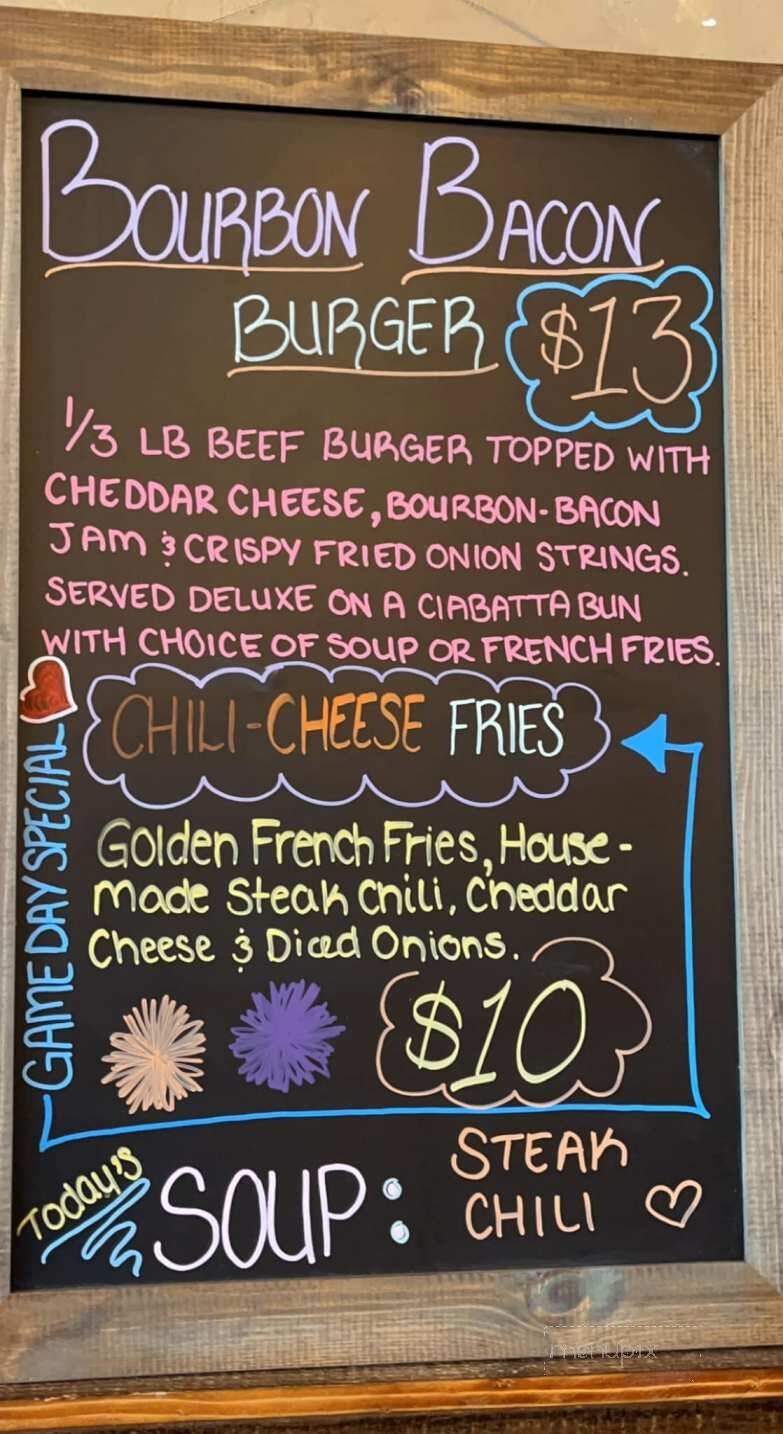 BOURBON BACON
BURGER $13
1/3 LB BEEF BURGER TOPPED WITH
CHEDDAR CHEESE, BOURBON-BACON
JAM & CRISPY FRIED ONION STRINGS.
SERVED DELUXE ON A CIABATTA BUN
WITH CHOICE OF SOUP OR FRENCH FRIES.
GAME DAY SPECIAL
CHILI-CHEESE FRIES
Golden French Fries, House-
made Steak Chili, Cheddar
Cheese & Diced Onions.
$10
Today's
SOUP:
STEAK
CHILI
menupix